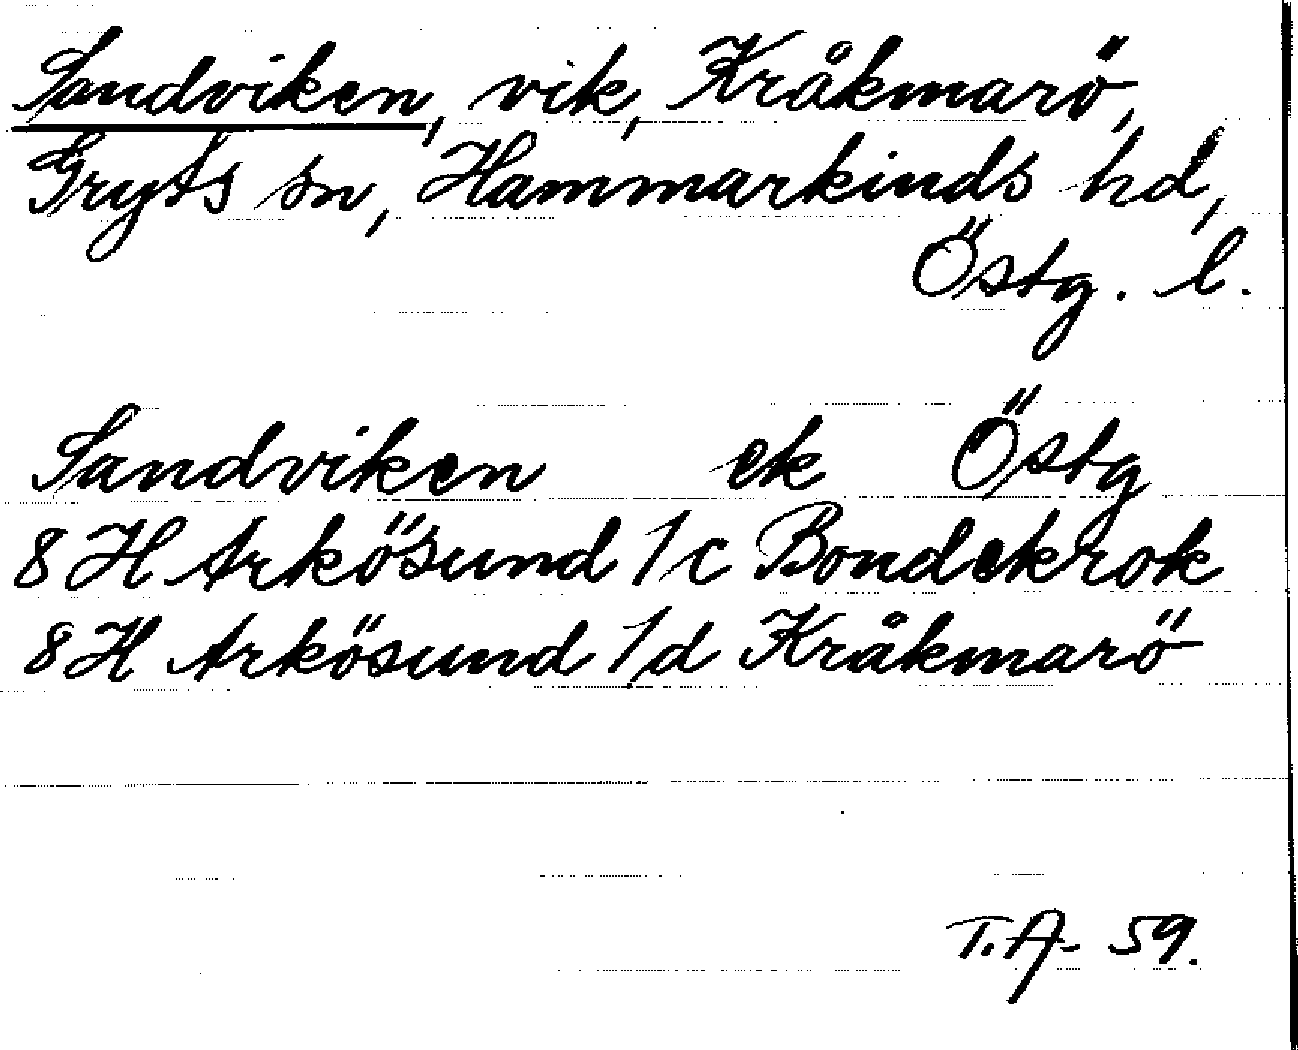 Sandviken, vik, Kråkmarö,
Gryts sn, Hammarkinds hd,
Östg. l.
Sandviken ek Östg
8 H Arkösund 1/c Bondekrok
8 H Arkösund 1/d Kråkmarö
T.A- 59.